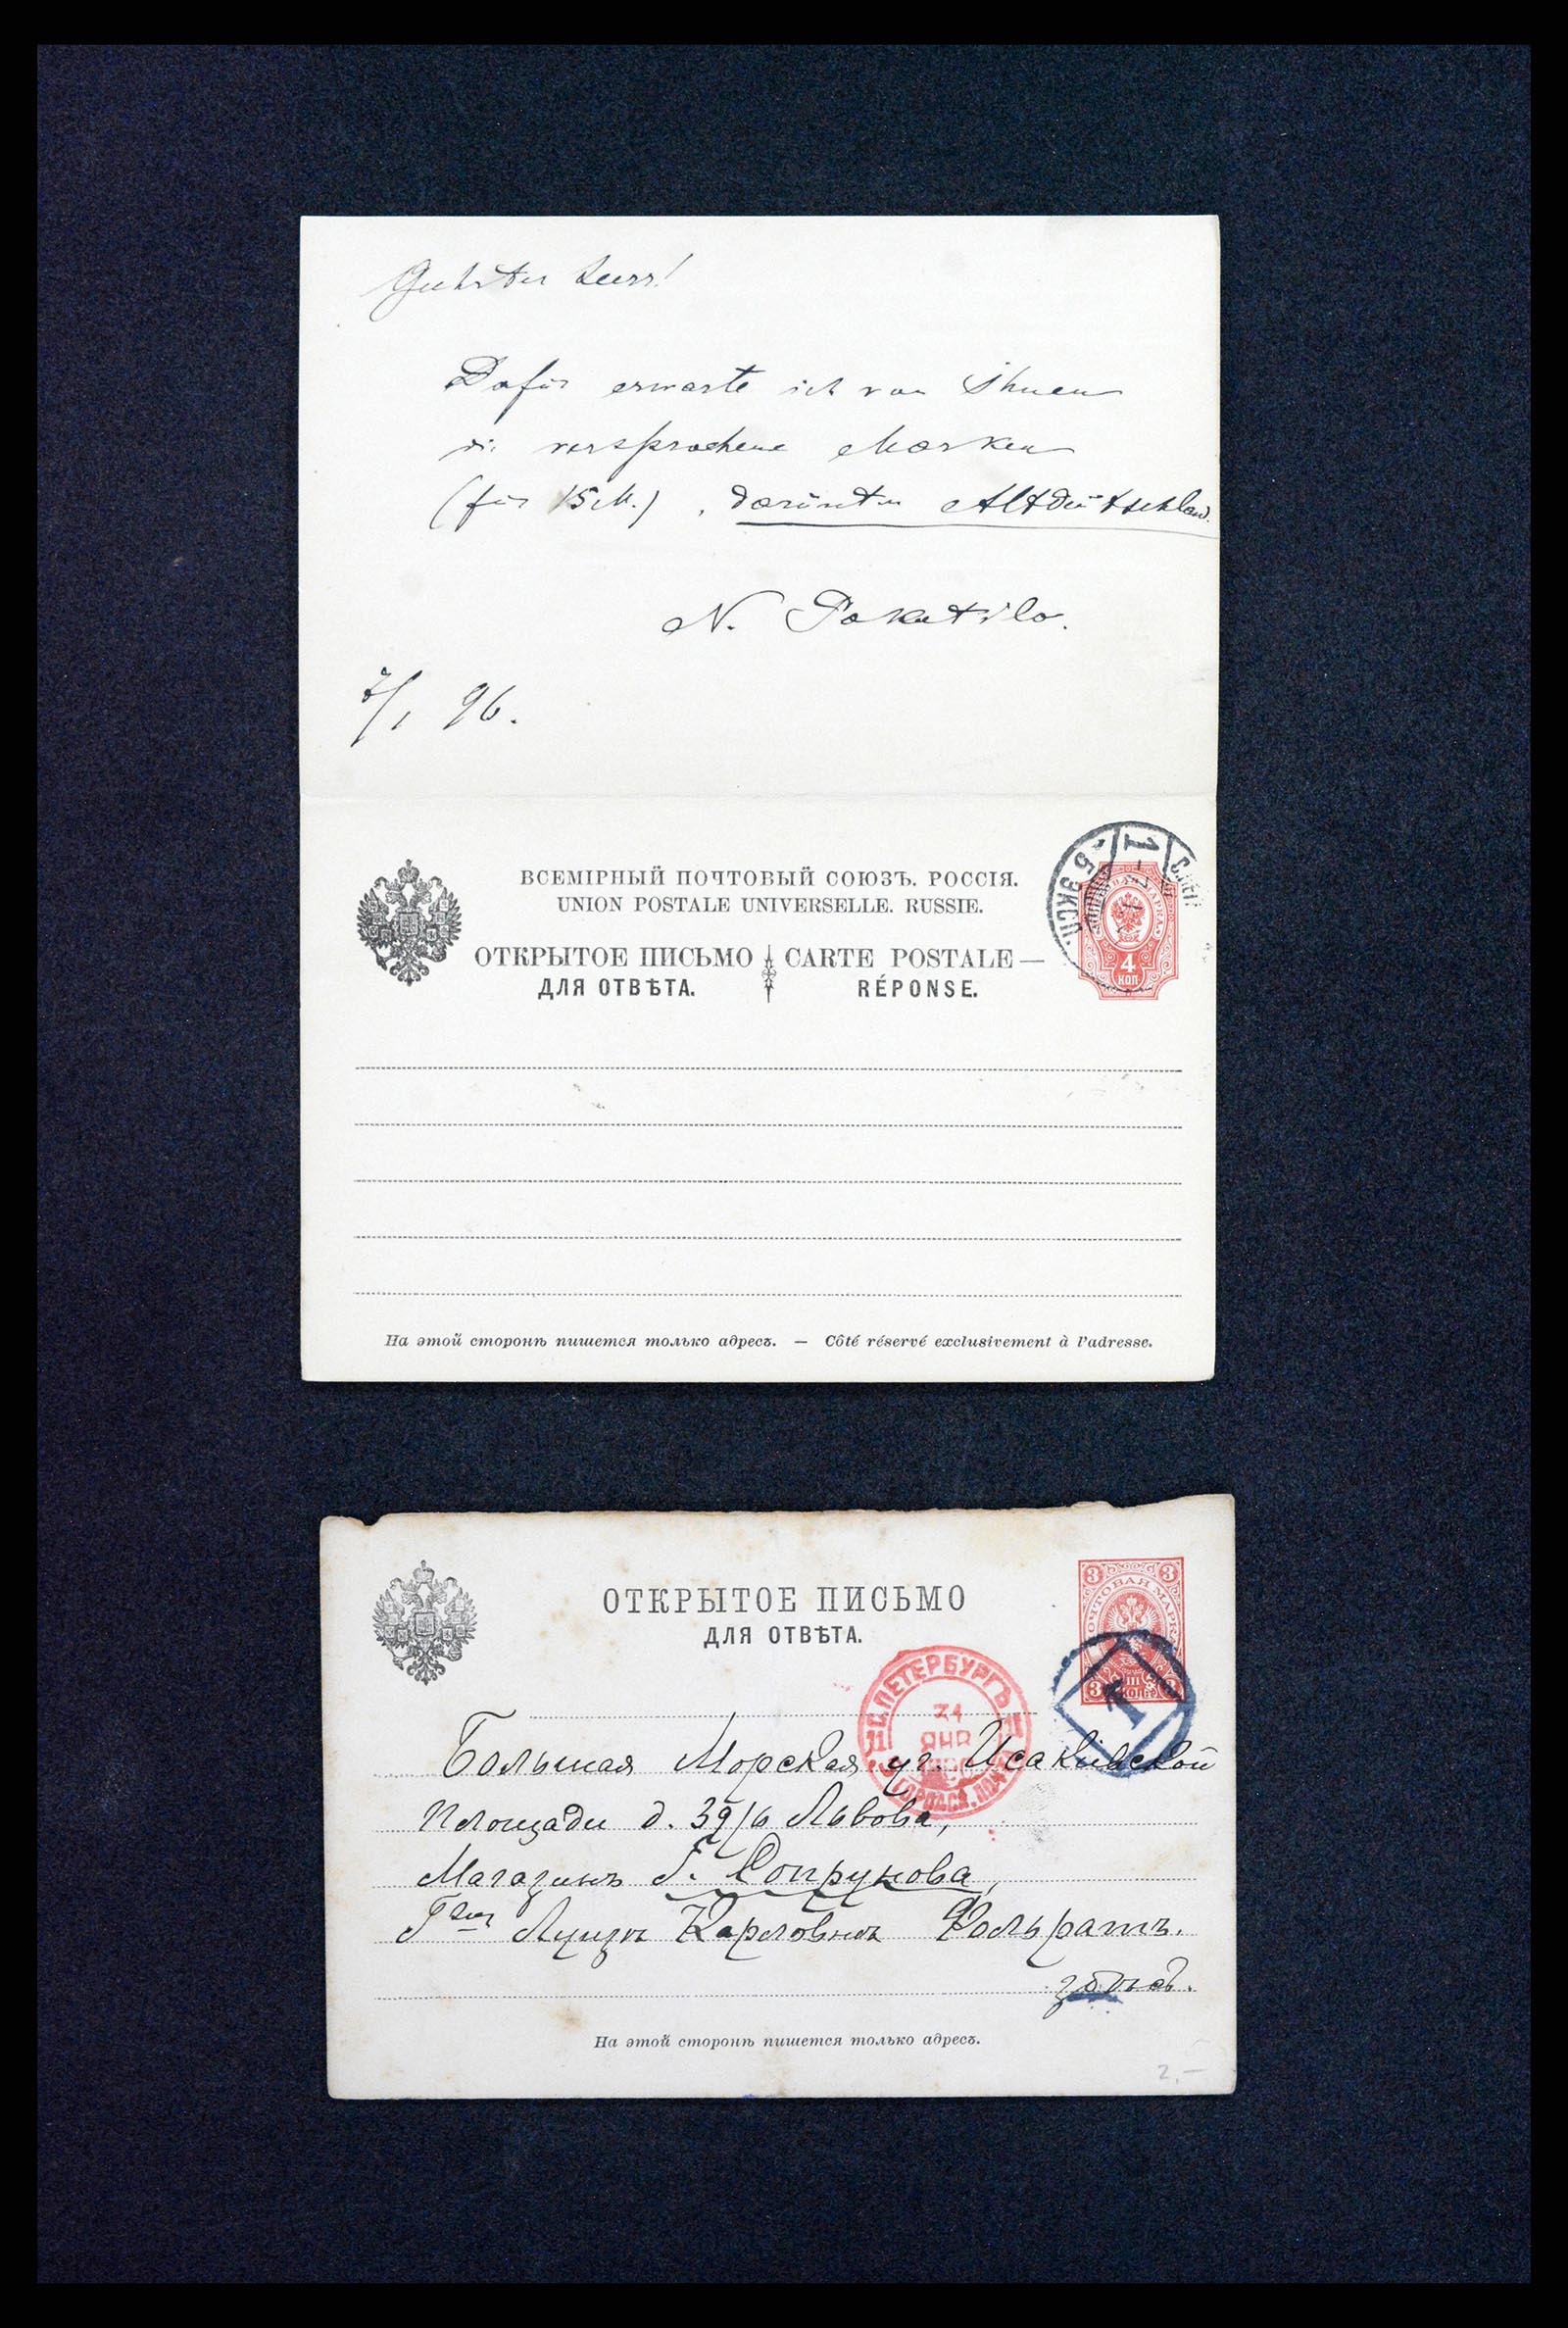 Geehrter Herr!
Dafür erwarte ich von Ihnen
die versprochene Marken
(für 15 M.), darunter Altdeutschland.
N. Pokatilo.
7/I 96.
ВСЕМІРНЫЙ ПОЧТОВЫЙ СОЮЗЪ. РОССІЯ.
UNION POSTALE UNIVERSELLE. RUSSIE.
ОТКРЫТОЕ ПИСЬМО CARTE POSTALE —
ДЛЯ ОТВѢТА. RÉPONSE.
5 ЭКСП. 1
4
КОП
На этой сторонѣ пишется только адресъ. — Côté réservé exclusivement à l'adresse.
ОТКРЫТОЕ ПИСЬМО
ДЛЯ ОТВѢТА.
3 3
ПОЧТОВАЯ МАРКА
3 3
С.ПЕТЕРБУРГЪ
31
ЯНВ
ГОРОДСК. ПОЧТА
1
Большая Морская уг. Исакіевской
Площади д. 39/6 Львова,
Магазинъ Г. Сопрунова,
Г-жѣ Луизѣ Карловнѣ Фольратъ.
здѣсь.
На этой сторонѣ пишется только адресъ.
2,—